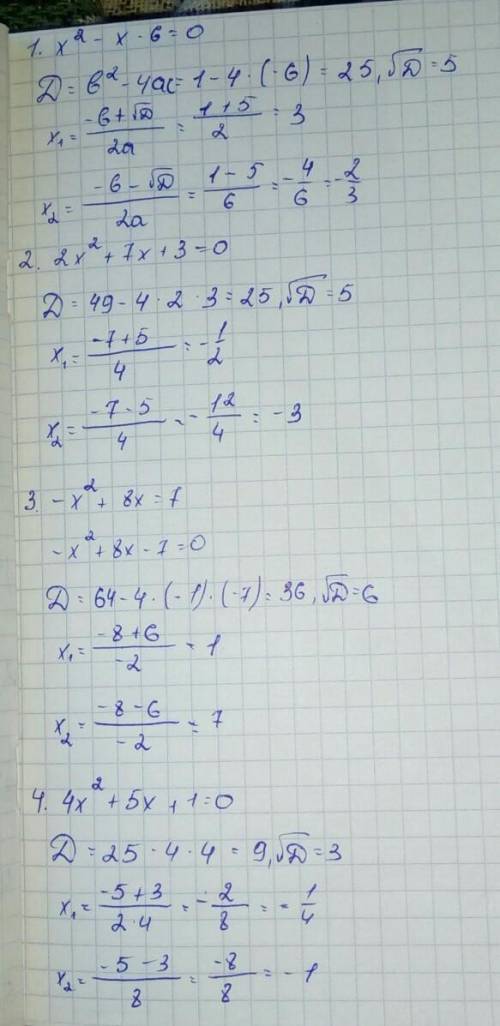 1. x² - x - 6 = 0
D = b² - 4ac = 1 - 4 · (-6) = 25, √D = 5
x₁ = (-b + √D)/2a = (1 + 5)/2 = 3
x₂ = (-b - √D)/2a = (1 - 5)/6 = -4/6 = -2/3
2. 2x² + 7x + 3 = 0
D = 49 - 4 · 2 · 3 = 25, √D = 5
x₁ = (-7 + 5)/4 = -1/2
x₂ = (-7 - 5)/4 = -12/4 = -3
3. -x² + 8x = 7
-x² + 8x - 7 = 0
D = 64 - 4 · (-1) · (-7) = 36, √D = 6
x₁ = (-8 + 6)/-2 = 1
x₂ = (-8 - 6)/-2 = 7
4. 4x² + 5x + 1 = 0
D = 25 - 4 · 4 = 9, √D = 3
x₁ = (-5 + 3)/2·4 = -2/8 = -1/4
x₂ = (-5 - 3)/8 = -8/8 = -1